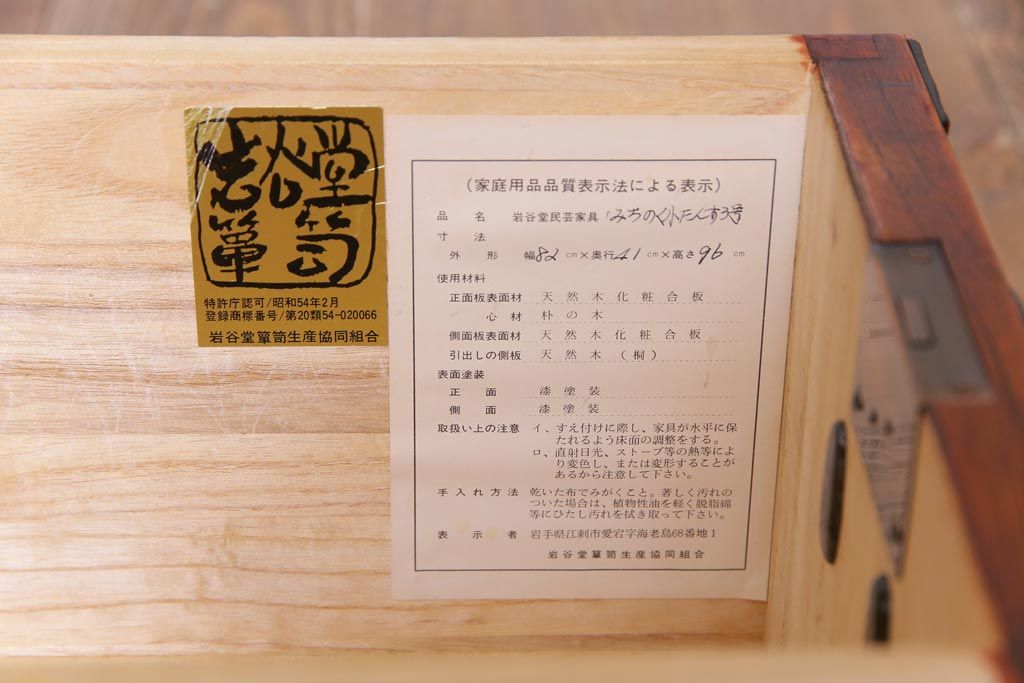 岩谷堂簞笥
特許庁認可/昭和54年2月
登録商標番号/第20類54-020066
岩谷堂簞笥生産協同組合
（家庭用品品質表示法による表示）
品名 岩谷堂民芸家具 みちのく小たんす3号
寸法
外形 幅82cm×奥行41cm×高さ96cm
使用材料
正面板表面材 天然木化粧合板
心材 朴の木
側面板表面材 天然木化粧合板
引出しの側板 天然木（桐）
表面塗装
正面 漆塗装
側面 漆塗装
取扱い上の注意 イ、すえ付けに際し、家具が水平に保
たれるよう床面の調整をする。
ロ、直射日光、ストーブ等の熱等によ
り変色し、または変形することが
あるから注意して下さい。
手入れ方法 乾いた布でみがくこと。著しく汚れの
ついた場合は、植物性油を軽く脱脂綿
等にひたし汚れを拭き取って下さい。
表示者 岩手県江刺市愛宕字海老島68番地1
岩谷堂簞笥生産協同組合